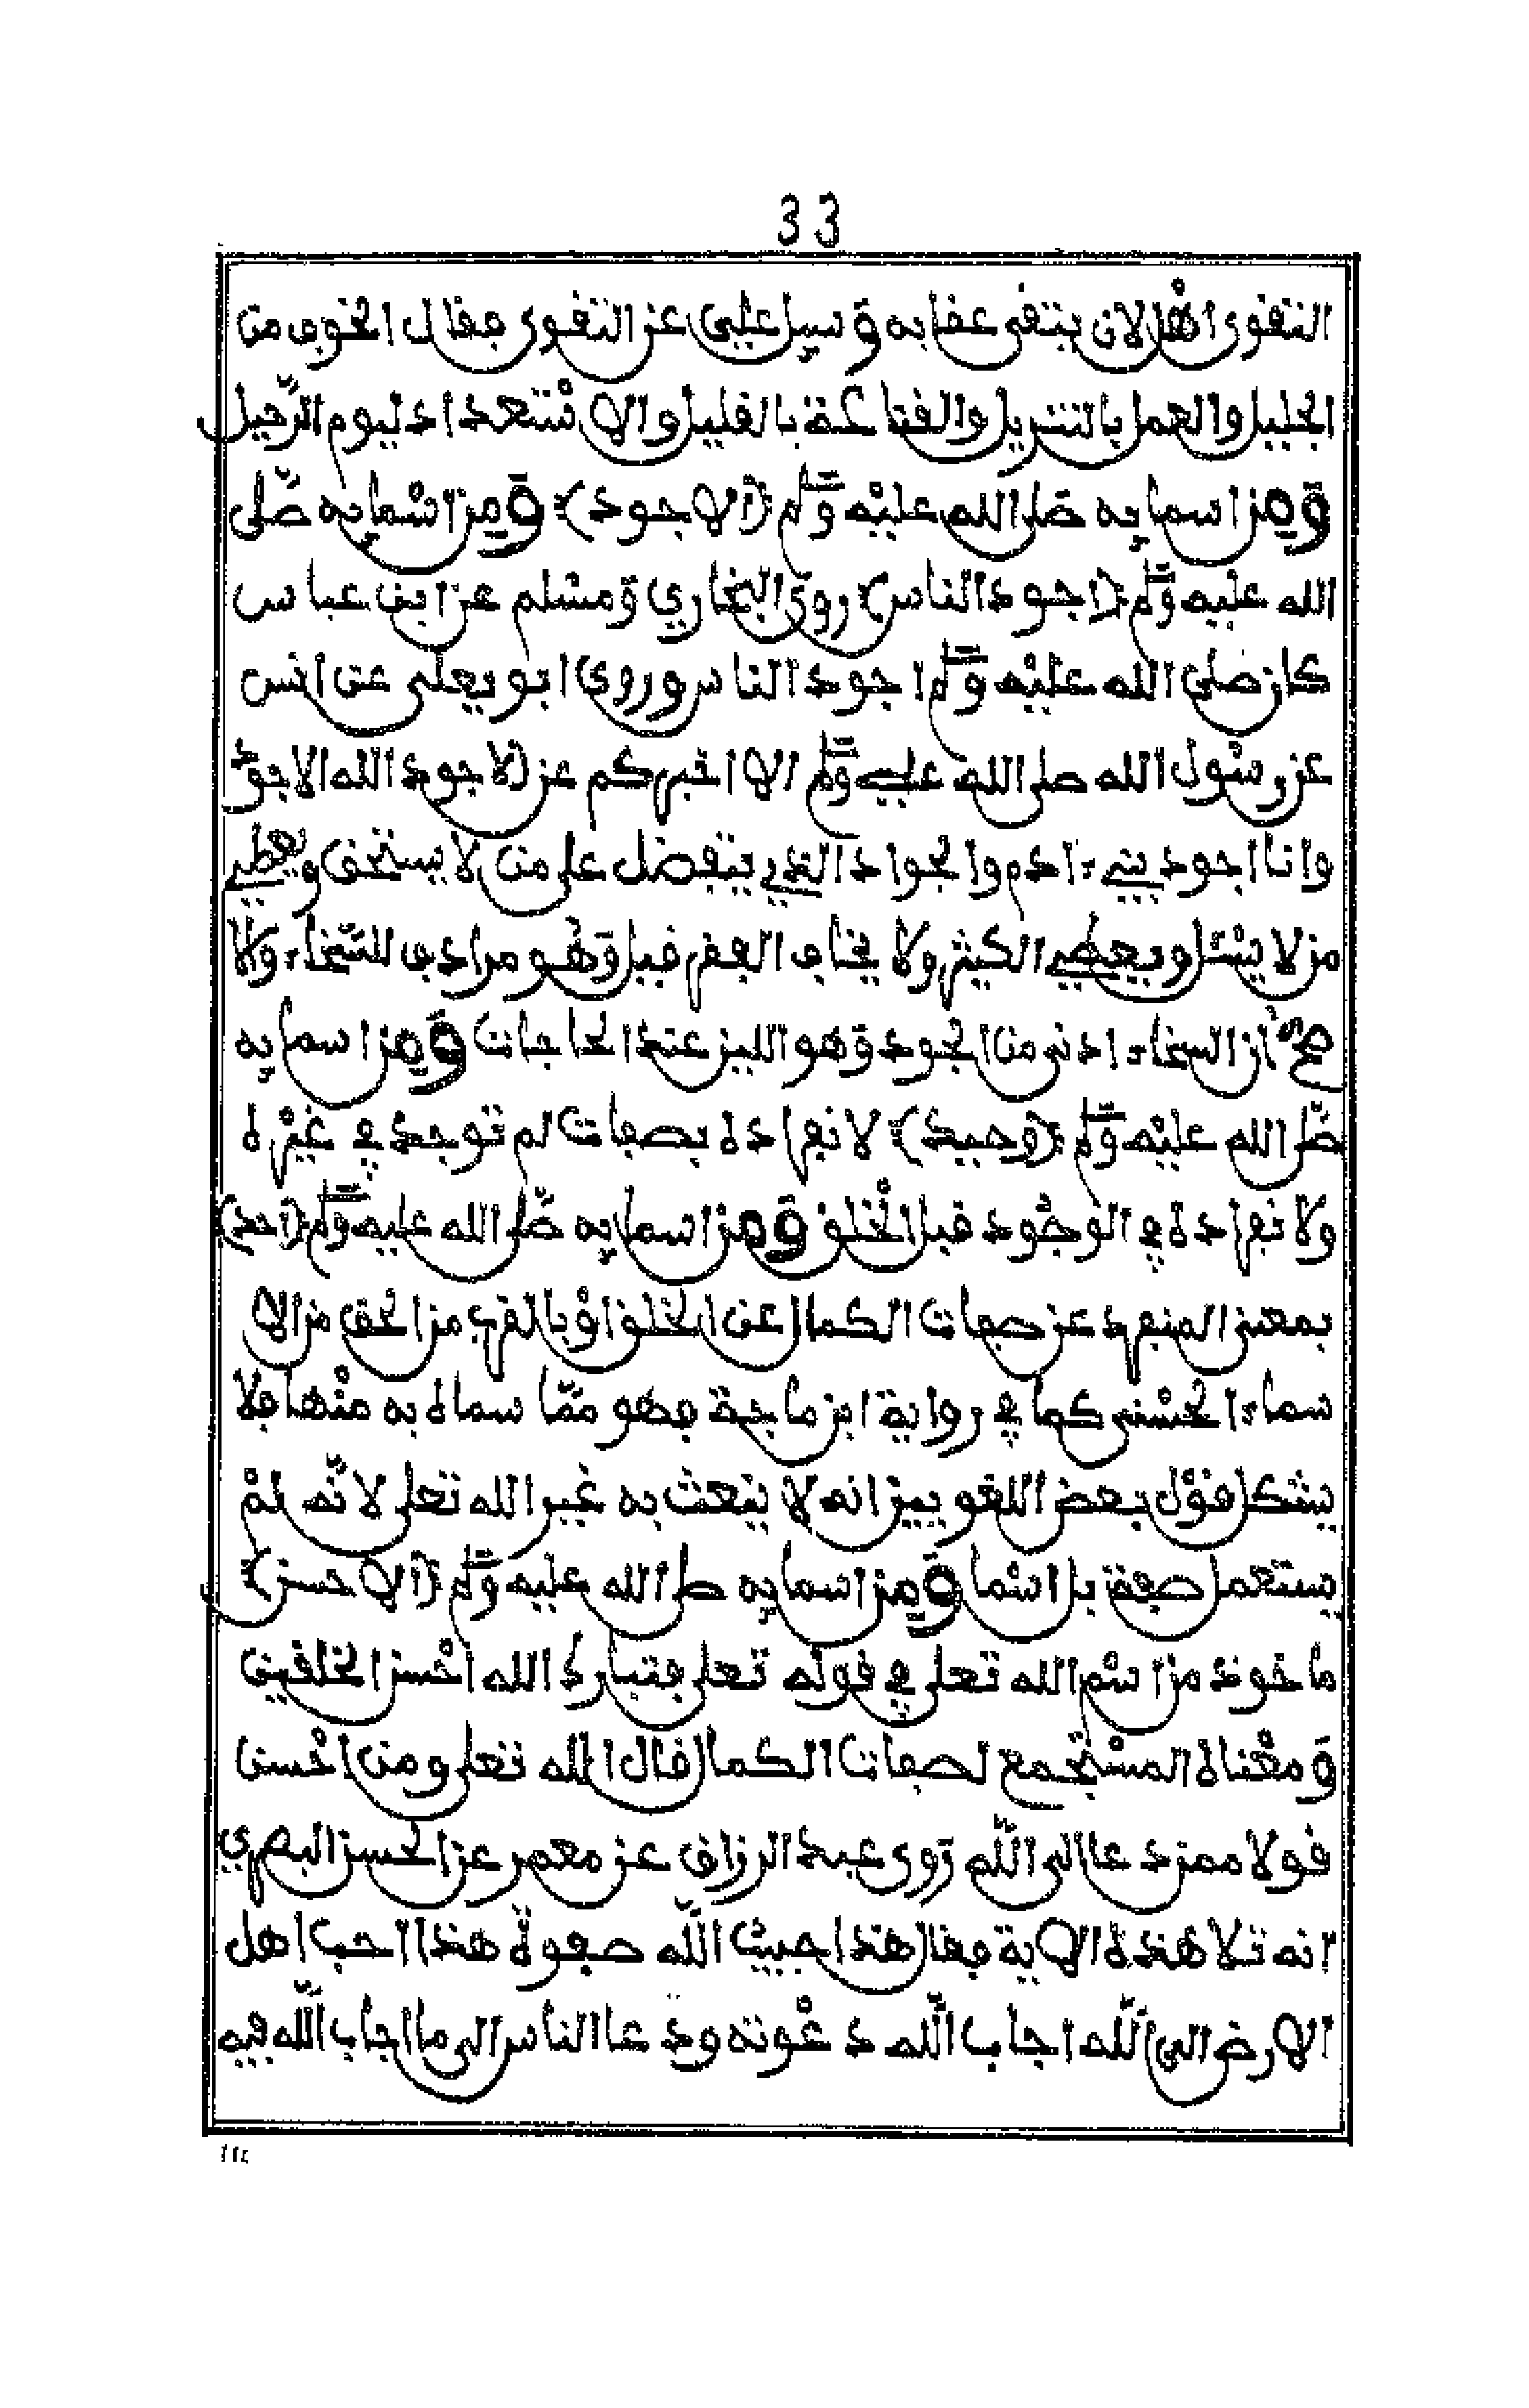 33
التقوى اهْل لان يتقى عقابه وسيل علي عن التقوى فقال الخوف من
الجليل والعمل بالتنزيل والقناعة بالقليل والاستعداد ليوم الرّحيل
ومن اسمايه صلى الله عليْه وسلم (الاجود) ومن اسْمايه صلّى
الله عليْه وسلم (اجود الناس) روى البخاري ومسْلم عن ابن عباس
كان صلى الله عليْه وسلم اجود الناس وروى ابو يعلى عن انس
عن رسْول الله صلى الله عليه وسلم الا اخبركم عن الاجود الله الاجود
وانا اجود بني ءادم والجواد الذي يتفضل على من لا يستحق ويعطي
من لا يسْئل ويعطي الكثير ولا يخاف الفقر قيل وهْو مرادف للسّخاء والا
صح ان السخاء ادنى من الجود وهو اللين عند الحاجات ومن اسمايه
صلّى الله عليْه وسلم (وحيد) لانفراده بصفات لم توجد في غيْره
ولانفراده في الوجُود قبل الخْلق ومن اسمايه صلّى الله عليه وسلم (احد)
بمعنى المنفرد عن صفات الكمال عن الخلق اوْ بالقرب من الحق من الا
سماء الحسْنى كما في رواية ابن ماجة فهو ممّا سماه به منْها فلا
يشكل قوْل بعض اللغويين انه لا ينعت به غير الله تعلى لانّه لمْ
يستعمل صفة بل اسْما ومن اسمايه صلى الله عليه وسلم (الاحسن)
ماخوذ من اسْم الله تعلى في قوله تعلى فتبارك الله احْسن الخلقين
ومعْناه المسْتجمع لصفات الكمال قال الله تعلى ومن احْسن
قولا ممن دعا الى اللّه روى عبد الرزاق عن معمر عن الحسن البصري
انه تلا هذه الاية فقال هذا حبيب اللّه صفوة هذا احب اهل
الارض الى اللّه اجاب اللّه دعْوته ودعا الناس الى ما اجاب اللّه فيه